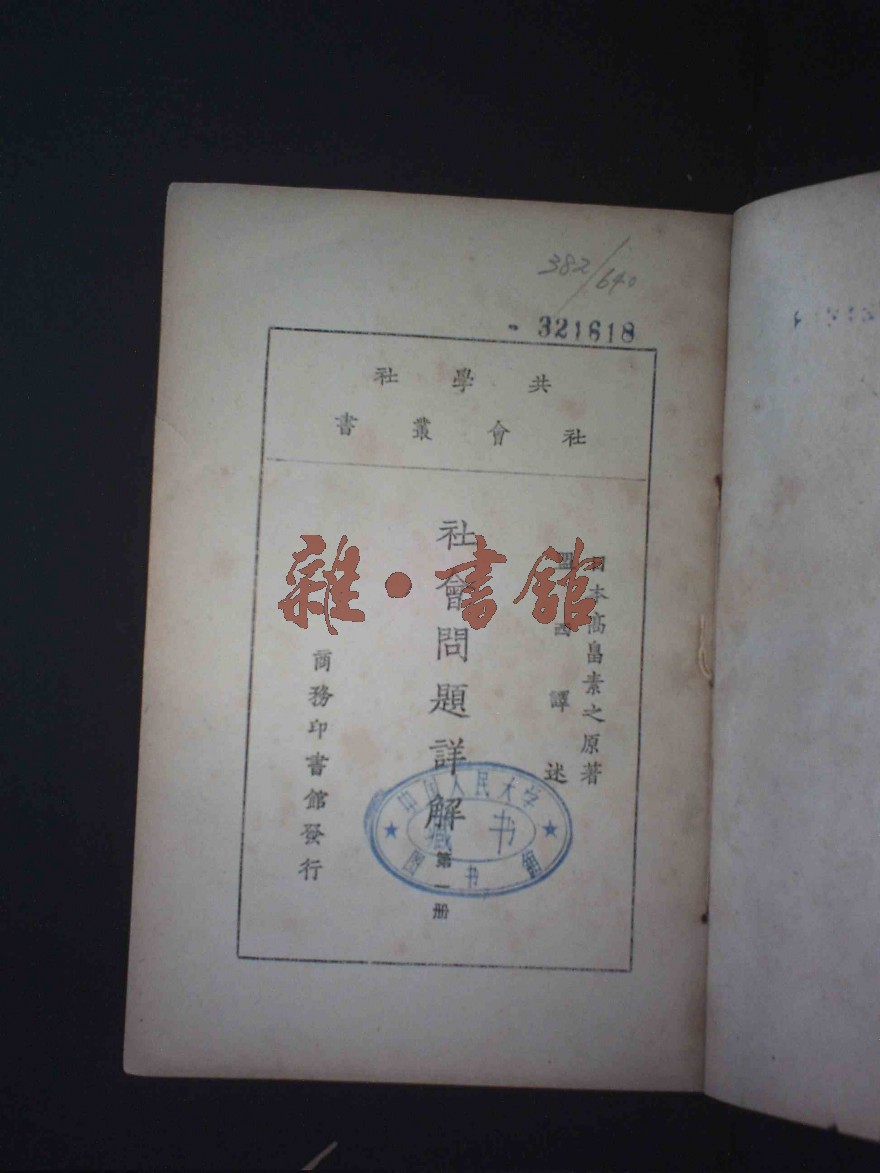 382/640
321618
共學社
社會叢書
日本高畠素之原著
盟西譯述
社會問題詳解
第一册
商務印書館發行
雜·書館
中国人民大学
藏书
图书馆